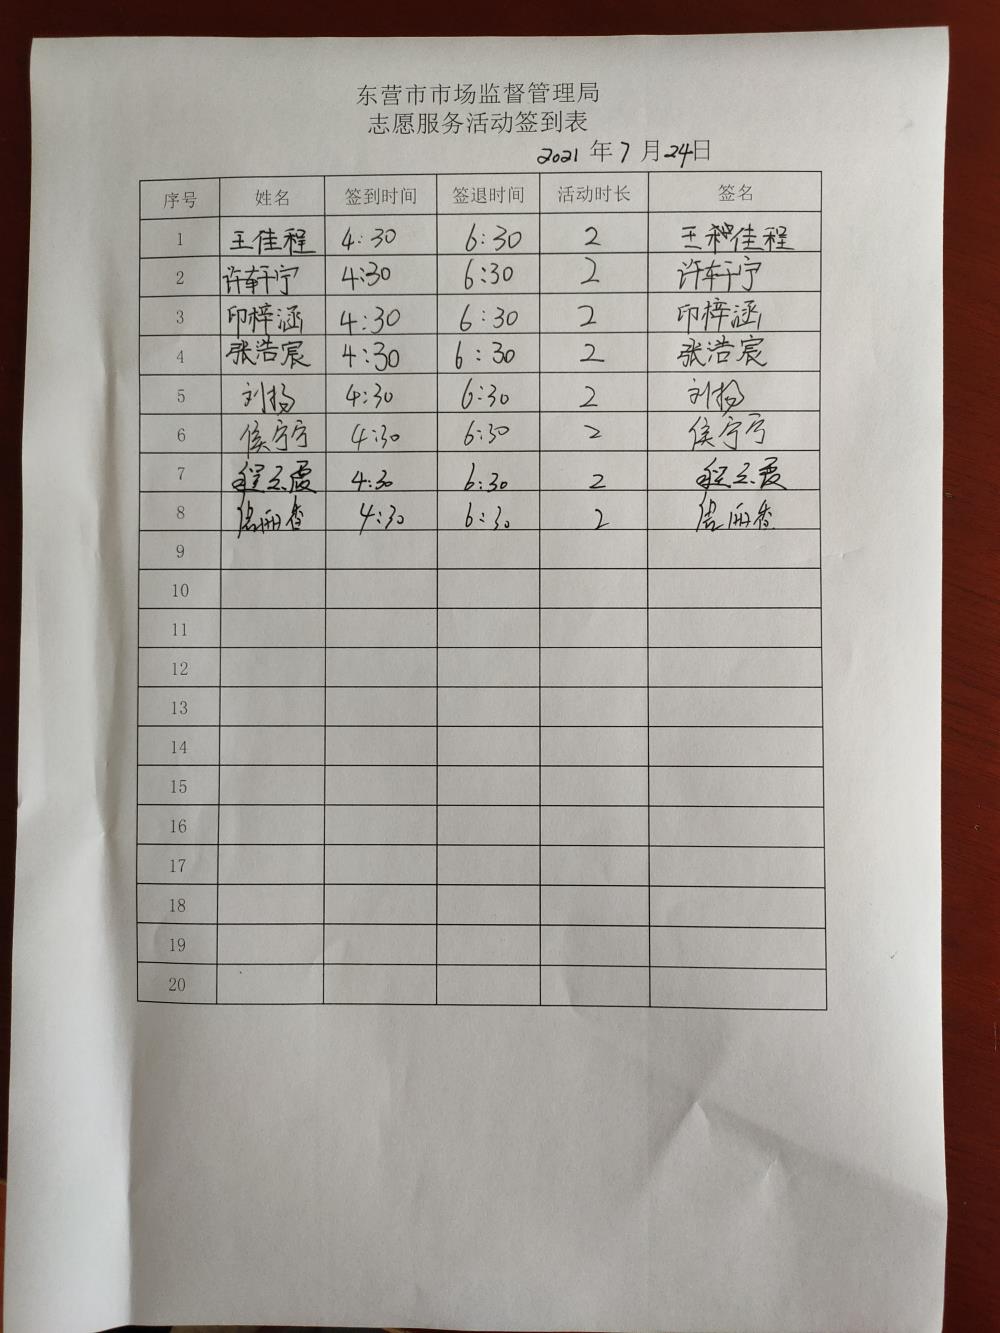 东营市市场监督管理局
志愿服务活动签到表
2021 年 7 月 24日
序号 姓名 签到时间 签退时间 活动时长 签名
1 王佳程 4:30 6:30 2 王 佳程
2 许轩宁 4:30 6:30 2 许轩宁
3 印梓涵 4:30 6:30 2 印梓涵
4 张浩宸 4:30 6:30 2 张浩宸
5 刘杨 4:30 6:30 2 刘杨
6 侯宁宁 4:30 6:30 2 侯宁宁
7 程云霞 4:30 6:30 2 程云霞
8 4:30 6:30 2
9
10
11
12
13
14
15
16
17
18
19
20